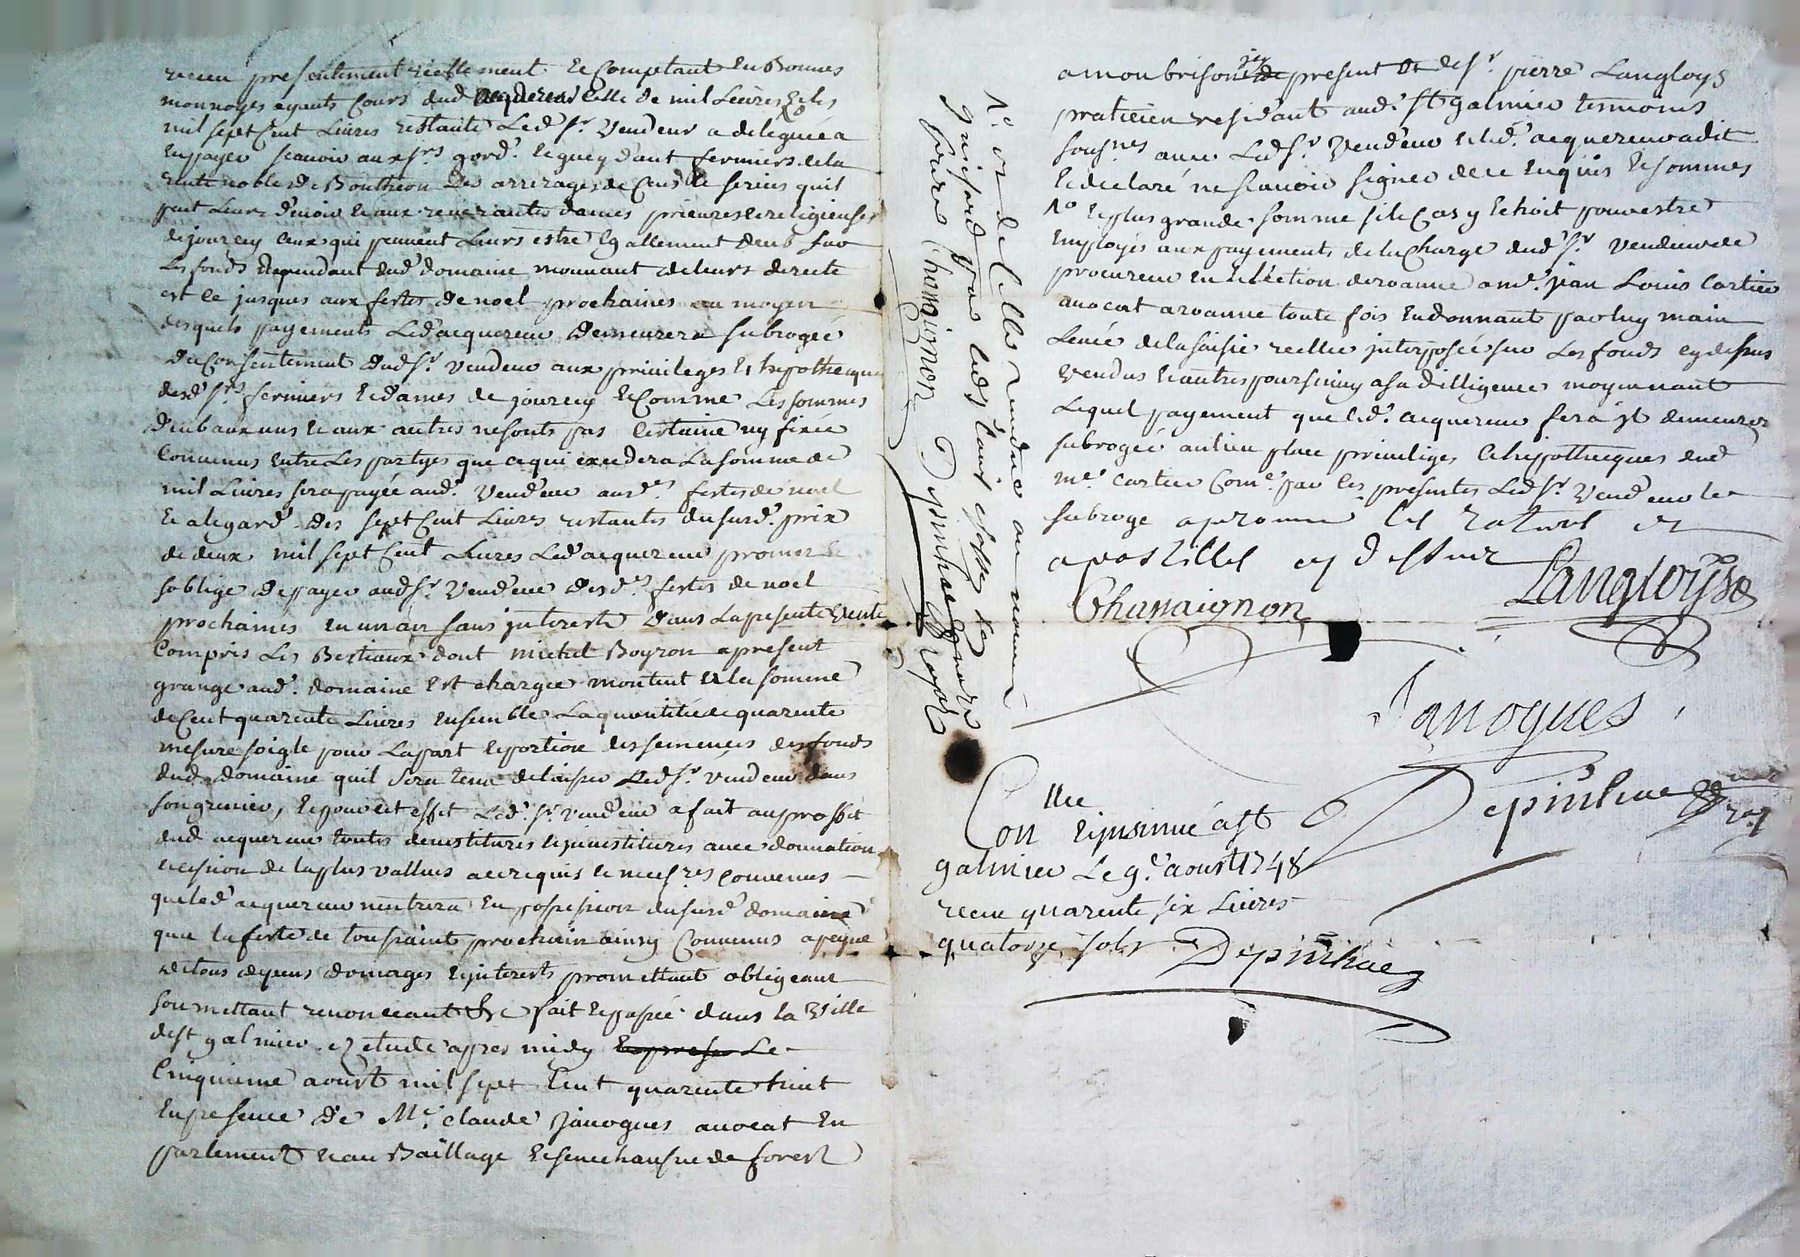 receu presentement reellement et Comptant en Bonnes
monnoyes ayants Cours dud acquereur Celle de mil Livres et les
mil sept Cent Livres restante Led Sr. Vendeur a deleguée a
En payer scavoir aux Srs gord. et guey d'aut fermiers de la
rente noble de Boutheon Les arrerages de Cens et servis quil
peut Leurs devoir et aux reverantes dames prieures et religieuses
de jourcey Ceux qui peuvent Leurs estre Egallement deub sur
Les fonds dependant dud. domaine mouvant de leurs directe
et ce jusques aux festes de noel prochaines au moyen
desquels payements Led acquereur demeurera subrogée
du Consentement dud Sr. Vendeur aux privileges et hipotheques
desd. Srs fermiers et dames de jourcey et Comme Les sommes
deub aux uns et aux autres ne sonts pas Certaine ny fixée
Convenus Entre Les partyes que ce qui excedera La somme de
mil Livres sera payée aud. Vendeur ausd. festes de noel
Et a legard des sept Cent Livres restantes du surd. prix
de deux mil sept Cent Livres Led acquereur promet et
soblige de payer aud Sr. Vendeur desd. festes de noel
prochaines en un an sans interests Dans La presente Vente
Compris Les Bestiaux dont michel Boyron a present
granger aud. domaine Est chargée montent a la somme
de Cent quarente Livres ensemble La quantitée de quarente
mesure soigle pour La part et portion des semences des fonds
dud. domaine quil sera tenu de laisser Led Sr. vendeur dans
son grenier, et pour cet effet Led. Sr. vendeur a fait au proffit
dud acquereur toutes demistitures et investitures avec donnation
cession de la plus vallues a ce requis et necessres convenus —
que led. acquereur n'entrera En possession du surd. domaine
qua la feste de toussaint prochain ainsy Convenus a peyne
de tous depens domages et interests promettant obligeant
soumettant renonceant &c fait et passée dans la Ville
de st galmier ez etude apres midy Le
Cinquieme aoust mil sept Cent quarente huit
En presence de Me. claude Janogues avocat En
parlement et au Baillage et senechaussée de forest
a monbrison y present et de Sr. pierre Langloys
praticien residant aud. st galmier temoins
sousnes avec Led Sr. Vendeur et led. acquereur a dit
Et declaré ne scavoir signer de ce Enquis et sommes
No et plus grande somme si le Cas y Echoit pour estre
Employés aux payements de la Charge dud Sr. Vendeur de
procureur en Eslection de roanne a me. jean Louis Cartier
avocat a roanne toute fois En donnant par luy main
Levée de la saisie reelle interposée sur Les fonds cy dessus
Vendus et autres poursuivy a sa dilligence moyennant
Lequel payement que led. acquereur fera il demeurera
subrogée au lieu place privileges et hipotheques dud
me. cartier Come. par les presentes Led Sr. Vendeur le
subroge approuvé les ratures et
apostilles cy dessus
Chanaignon
Langloys
Janogues
Depinhac
No. or de Celle rendue au moien
Chanaignon Depinhac
Con lle et insinué a st
galmier Le 9e. aoust 1748
receu quarente six Livres
quatorze sols Depinhac